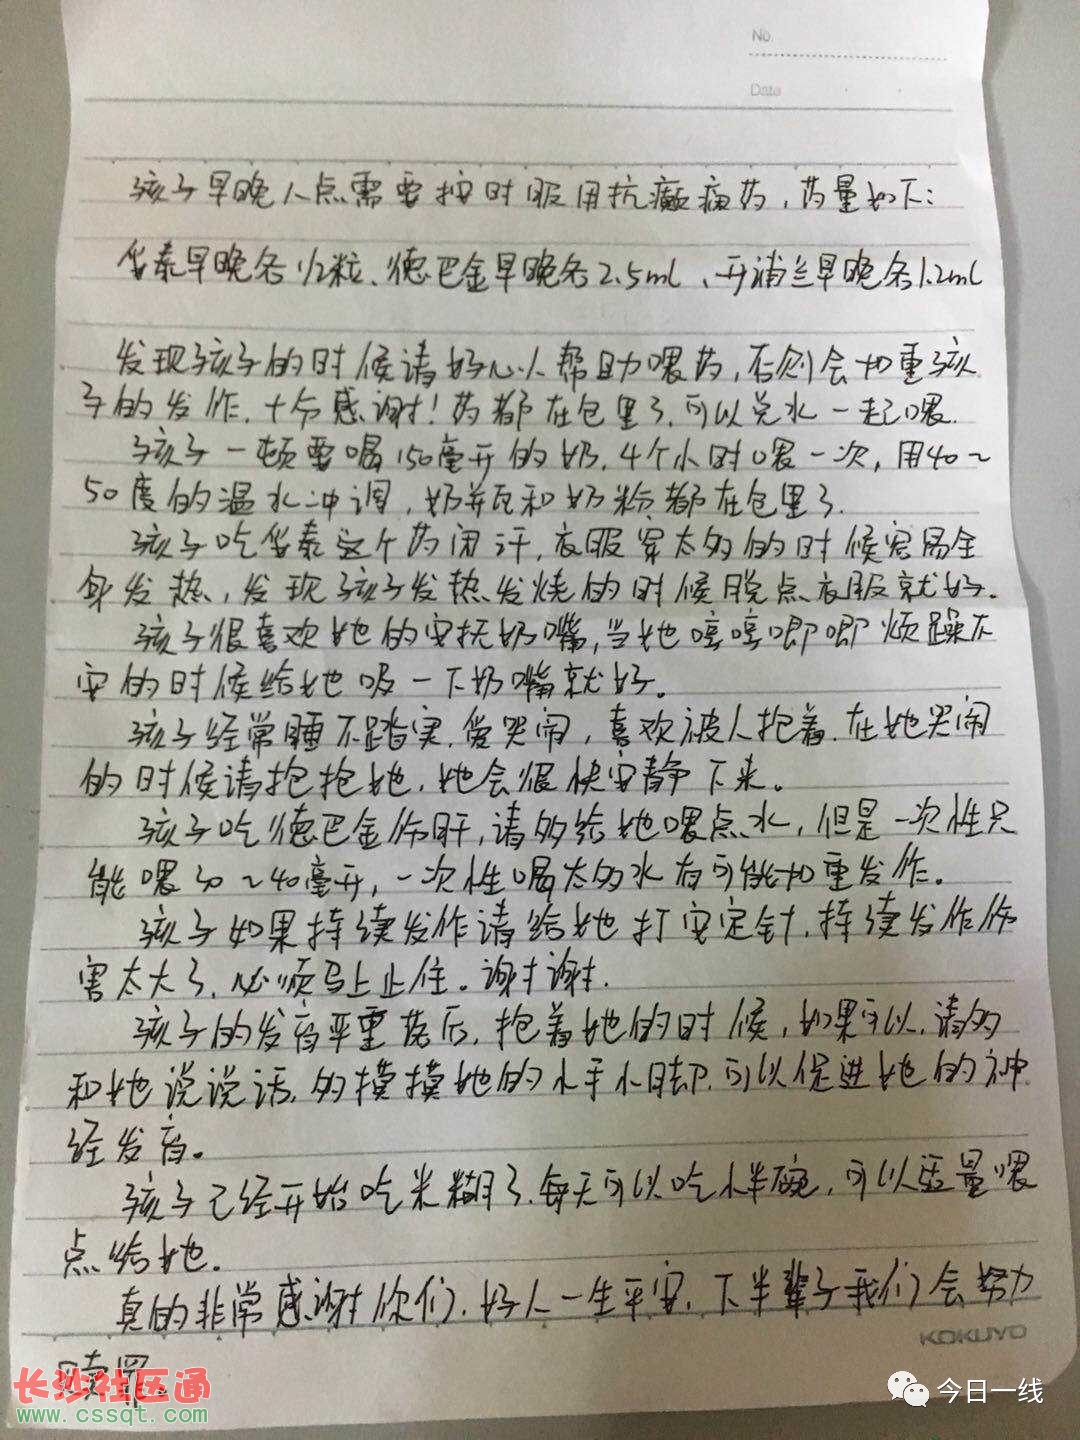 No.
Date
孩子早晚八点需要按时服用抗癫痫药，药量如下：
华素早晚各1/2粒、德巴金早晚各2.5ml、开浦兰早晚各1.2ml
发现孩子的时候请好心人帮助喂药，否则会加重孩
子的发作，十分感谢！药都在包里了，可以兑水一起喂.
孩子一顿要喝150毫升的奶，4个小时喂一次，用40～
50度的温水冲调，奶瓶和奶粉都在包里了.
孩子吃华素这个药闭汗，衣服穿太多的时候容易全
身发热，发现孩子发热发烧的时候脱点衣服就好.
孩子很喜欢她的安抚奶嘴，当她哼哼唧唧烦躁不
安的时候给她吸一下奶嘴就好。
孩子经常睡不踏实，爱哭闹，喜欢被人抱着，在她哭闹
的时候请抱抱她，她会很快安静下来。
孩子吃德巴金伤肝，请多给她喂点水，但是一次性只
能喂30～40毫升，一次性喝太多水有可能加重发作。
孩子如果持续发作请给她打安定针，持续发作伤
害太大了，必须马上止住。谢谢谢.
孩子的发育严重落后，抱着她的时候，如果可以，请多
和她说说话，多摸摸她的小手小脚，可以促进她的神
经发育。
孩子已经开始吃米糊了，每天可以吃小半碗，可以适量喂
点给她。
真的非常感谢你们，好人一生平安，下半辈子我们会努力
赎罪。
KOKUYO
长沙社区通
www.cssqt.com
今日一线